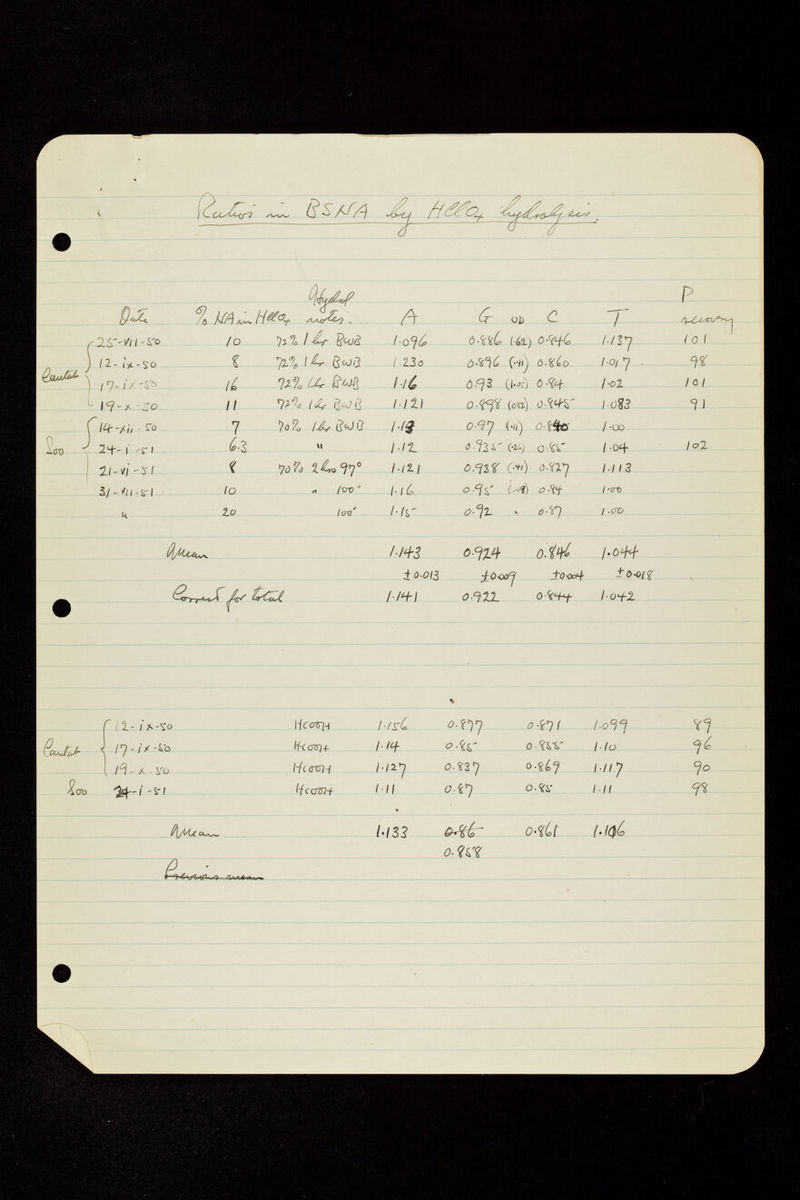 Ratios in BSNA by HClO4 hydrolysis.
Hydrol P
Date % NA in HClO4 notes. A G OD C T recovery
25-vii-50 10 72% 1 hr BWB 1.096 0.886 (.62) 0.846 1.137 101
Cantab 12-ix-50 8 72% 1 hr BWB 1.230 0.896 0.860 1.017 98
17-ix-50 16 72% 1 hr BWB 1.16 0.93 0.84 1.02 101
19-x-50 11 72% 1 hr BWB 1.121 0.898 0.845 1.083 91
14-xii-50 7 70% 1 hr BWB 0.97 1.00
Soo 24-i-51 6.3 " 1.12 0.935 0.85 1.04 102
21-vi-51 8 70% 2 hrs 97° 1.121 0.938 0.827 1.113
31-vii-51 10 " 100° 1.16 0.95 0.84 1.00
" 20 100° 1.15 0.92 0.87 1.00
Mean 1.143 0.924 0.846 1.044
±0.013 ±0.009 ±0.004 ±0.018
Correct for total 1.141 0.922 0.844 1.042
12-ix-50 HCOOH 1.156 0.877 0.871 1.099 89
Cantab 17-ix-50 HCOOH 1.14 0.85 0.855 1.10 96
19-x-50 HCOOH 1.127 0.837 0.869 1.117 90
Soo 24-i-51 HCOOH 1.11 0.87 0.85 1.11 98
Mean 1.133 0.86 0.861 1.106
0.858
Previous mean